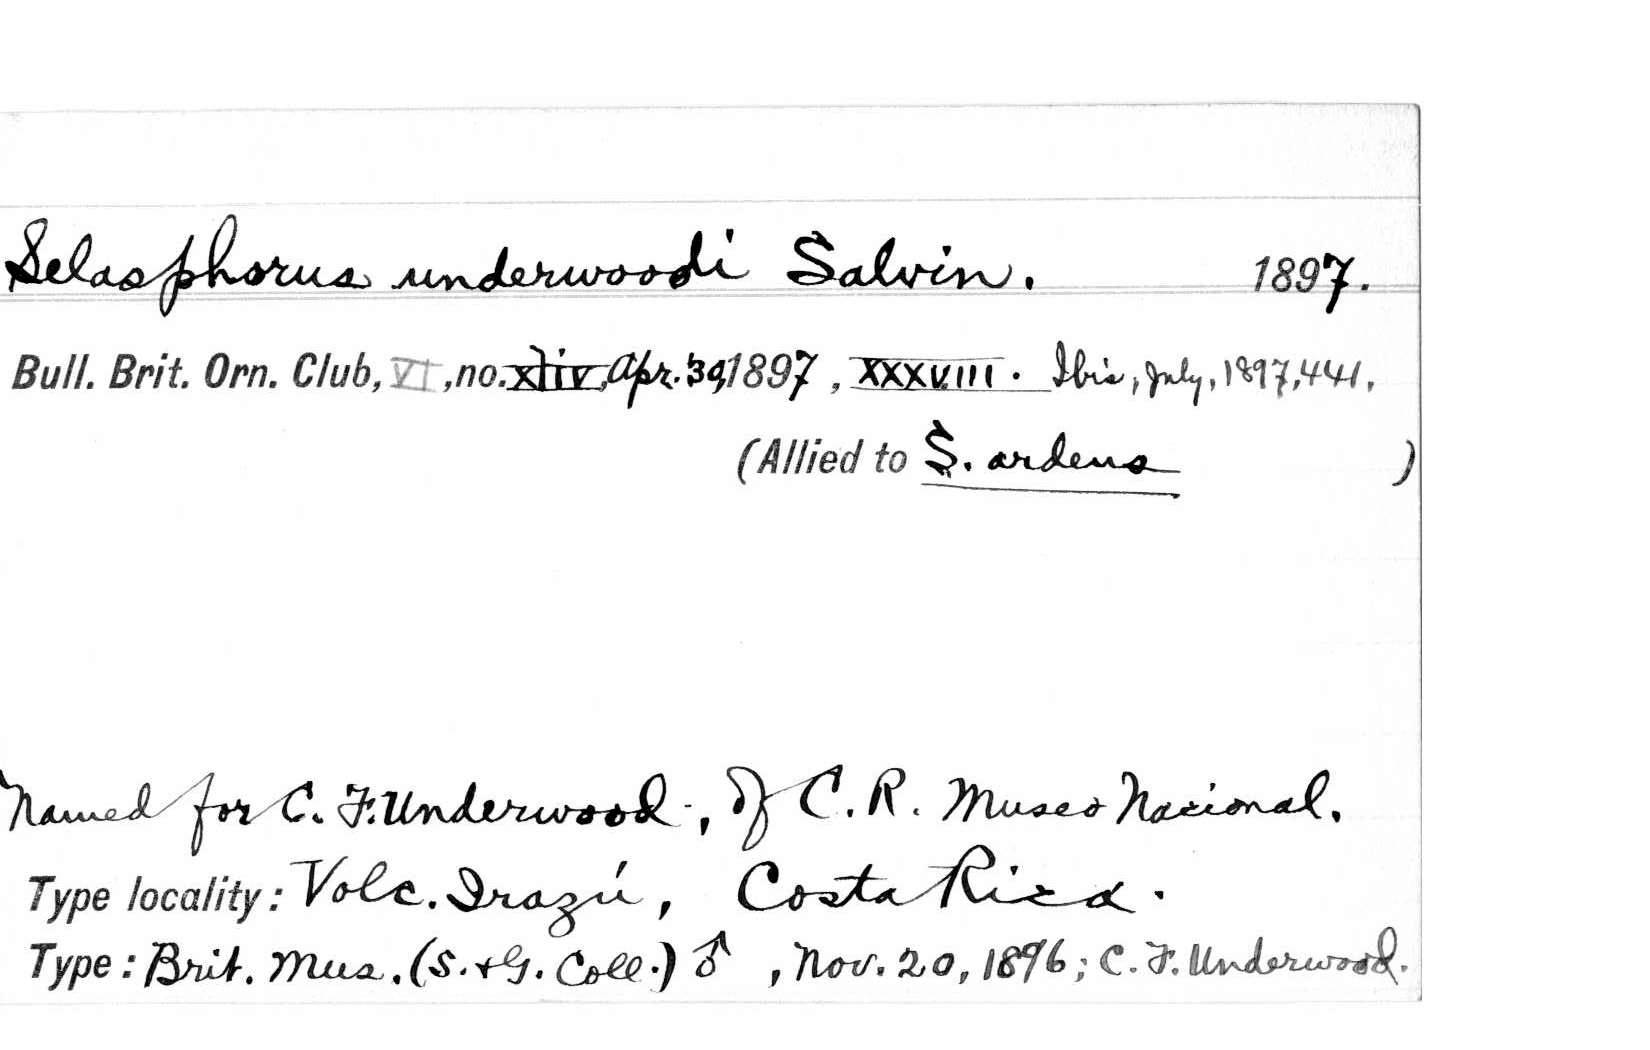 Selasphorus underwoodi Salvin. 1897.
Bull. Brit. Orn. Club, VI, no. xliv, Apr. 30, 1897, XXXVIII. Ibis, July, 1897, 441.
(Allied to S. ardens )
Named for C. F. Underwood, of C. R. Museo Nacional.
Type locality: Volc. Irazú, Costa Rica.
Type: Brit. Mus. (S. & G. Coll.) ♂, Nov. 20, 1896; C. F. Underwood.